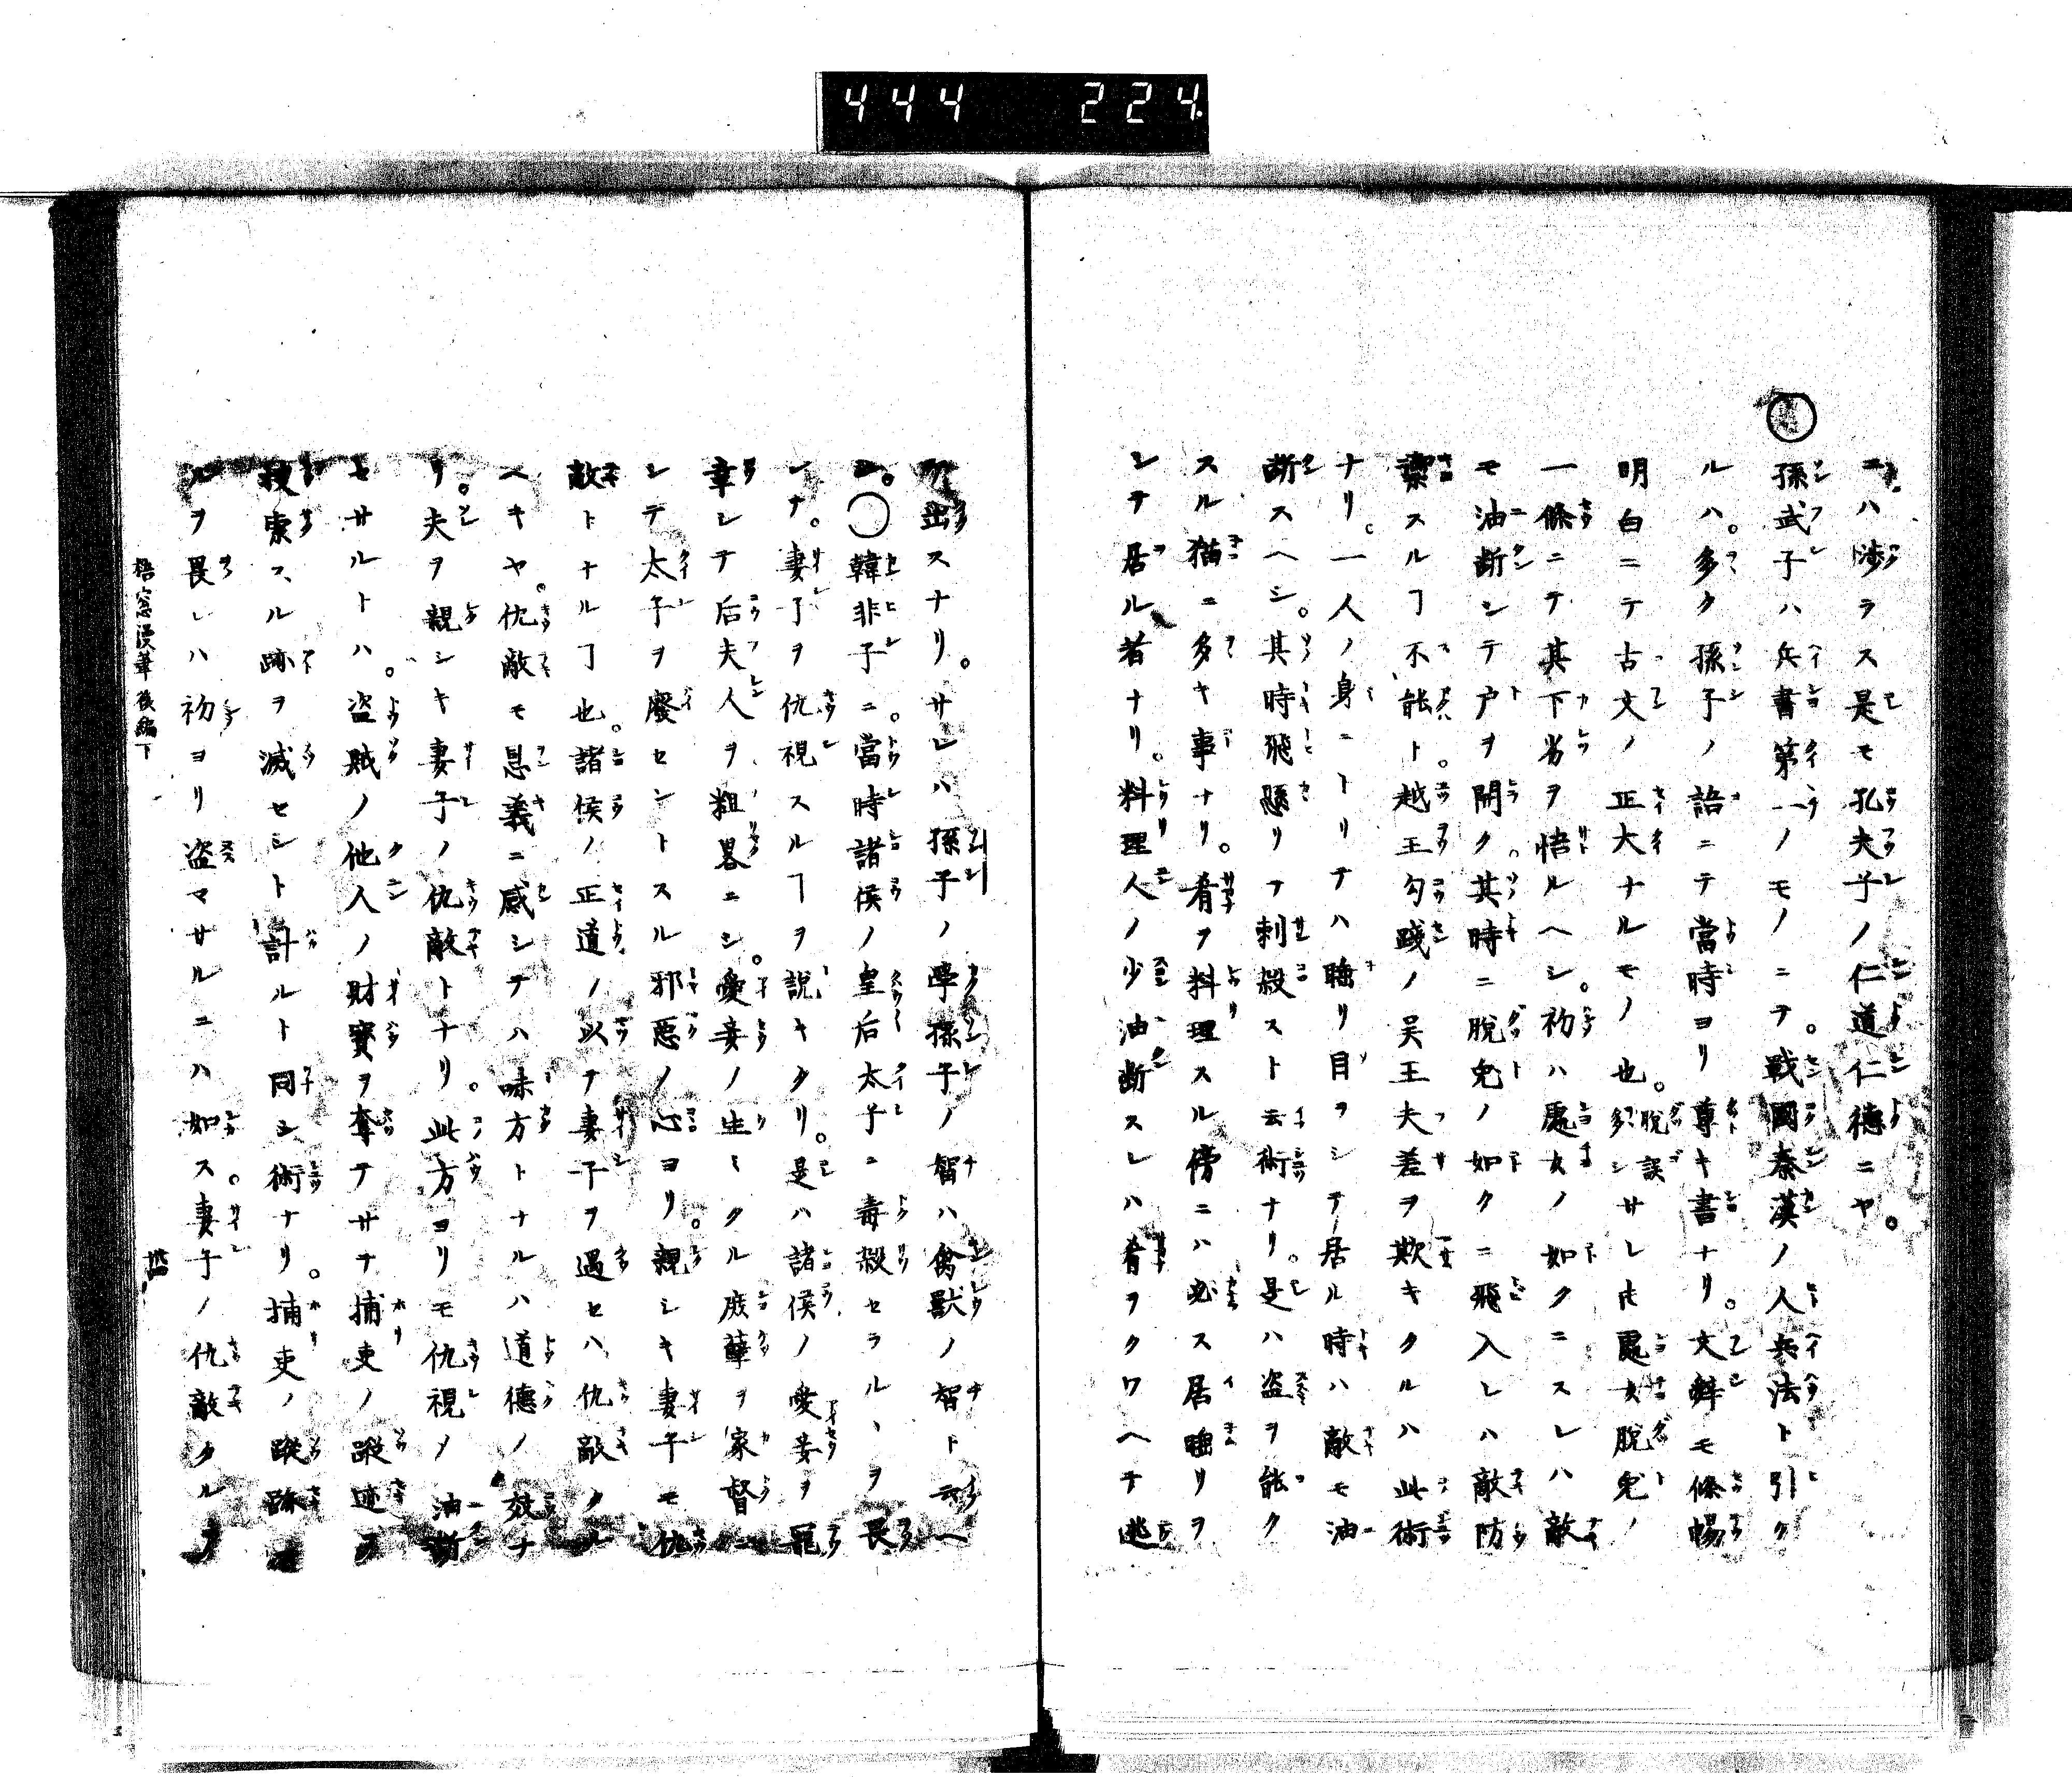 444 224
ニハ渉ラス是モ孔夫子ノ仁道仁德ニヤ。
○孫武子ハ兵書第一ノモノニテ。戰國秦漢ノ人兵法ト引ク
ルハ。多ク孫子ノ語ニテ當時ヨリ尊キ書ナリ。文辞モ條暢
明白ニテ古文ノ正大ナルモノ也。脫誤多シサレ𪜈處女脫兔ノ
一條ニテ其下劣ヲ悟ルヘシ。初ハ處女ノ如クニスレハ敵
モ油断シテ戸ヲ開ク。其時ニ脫兔ノ如クニ飛入レハ敵防
禦スルヿ不能ト。越王勾踐ノ吴王夫差ヲ欺キタルハ此術
ナリ。一人ノ身ニトリテハ睡リ目ヲシテ居ル時ハ敵モ油
断スヘシ。其時飛懸リテ刺殺スト云術ナリ。是ハ盗ヲ能ク
スル猫ニ多キ事ナリ。肴ヲ料理スル傍ニハ必ス居睡リヲ
シテ居ル者ナリ。料理人ノ少油断スレハ肴ヲクワヘテ逃
ケ出スナリ。サレハ孫子ノ學孫子ノ智ハ禽獸ノ智ト云ヘ
シ。○韓非子ニ。當時諸侯ノ皇后太子ニ毒殺セラルヽヲ畏
レテ。妻子ヲ仇視スルヿヲ說キタリ。是ハ諸侯ノ愛妾ヲ寵
幸シテ后夫人ヲ粗畧ニシ。愛妾ノ生ミタル庶孽ヲ家督ニ
シテ太子ヲ廢セントスル邪惡ノ心ヨリ。親シキ妻子モ仇
敵トナルヿ也。諸侯ノ正道ノ以テ妻子ヲ遇セハ仇敵タル
ヘキヤ。仇敵モ恩義ニ感シテハ味方トナルハ道德ノ效ナ
リ。夫ヲ親シキ妻子ノ仇敵トナリ。此方ヨリモ仇視ノ油断
セサルトハ。盗賊ノ他人ノ財寶ヲ奪テサテ捕吏ノ蹤迹ヲ
搜索スル跡ヲ滅セシト計ルト同シ術ナリ。捕吏ノ蹤跡
ルヲ畏レハ初ヨリ盗マサルニハ如ス。妻子ノ仇敵タルヲ
梧窓漫筆後編下